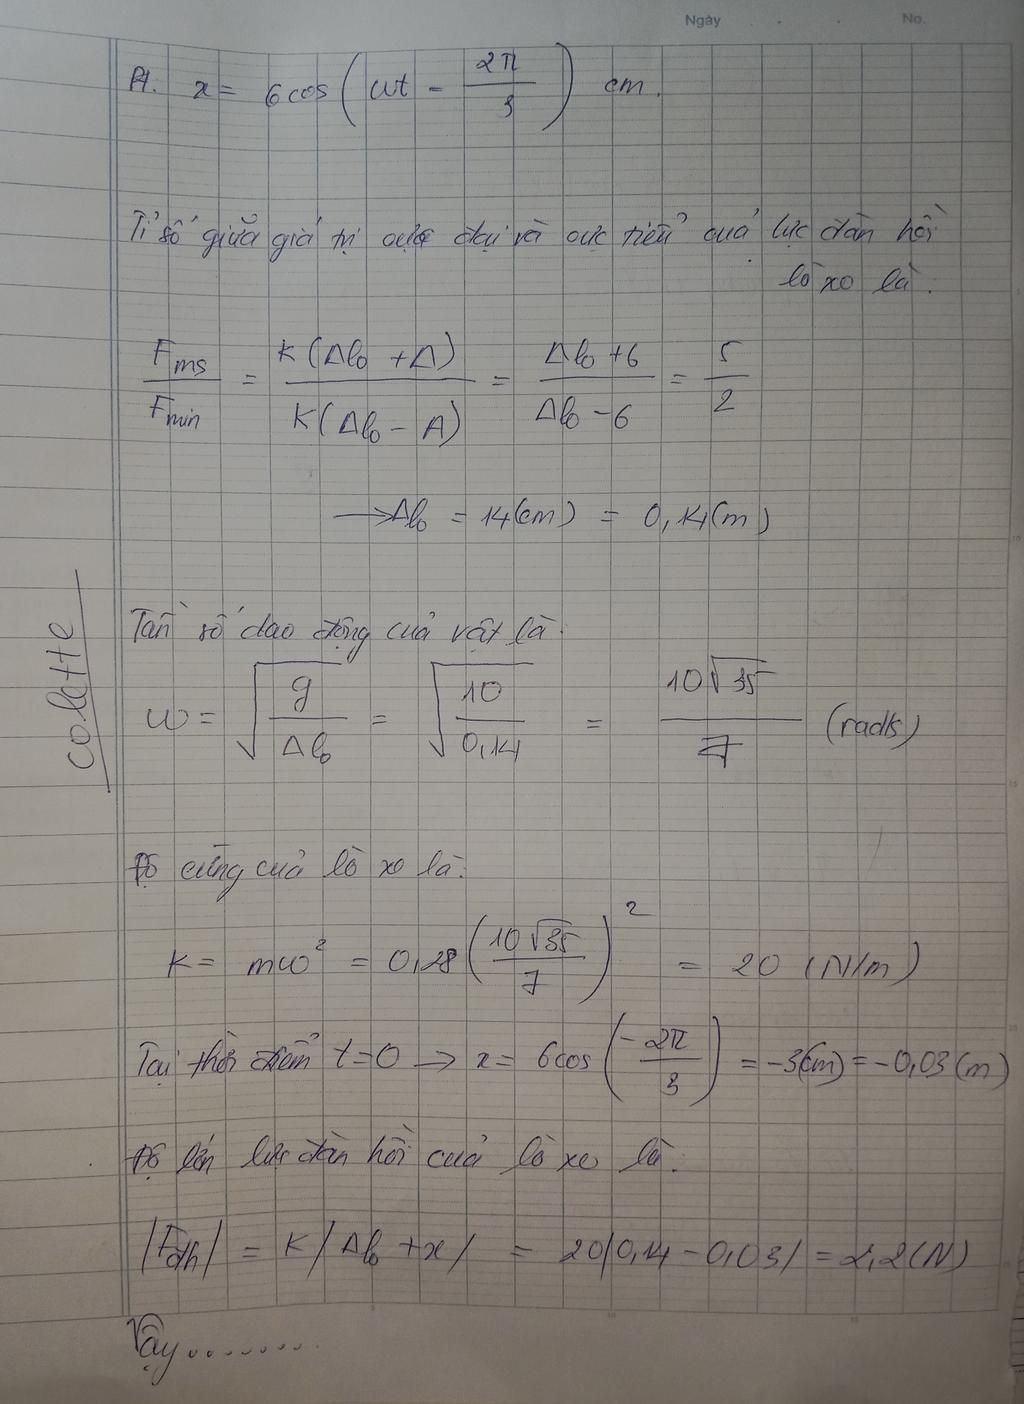 Ngày . . . No.
Pt. x = 6cos(ωt - 2π/3) cm.
Tỉ số giữa giá trị cực đại và cực tiểu của lực đàn hồi
lò xo là.
Fms/Fmin = K(Δl₀ + A)/K(Δl₀ - A) = Δl₀+6/Δl₀-6 = 5/2
→ Δl₀ = 14(cm) = 0,14(m)
Tần số dao động của vật là.
ω = √(g/Δl₀) = √(10/0,14) = 10√35/7 (rad/s)
Độ cứng của lò xo là.
K = mω² = 0,28(10√35/7)² = 20 (N/m)
Tại thời điểm t=0 → x = 6cos(-2π/3) = -3(cm) = -0,03(m)
Độ lớn lực đàn hồi của lò xo là.
|Fđh| = K|Δl₀ + x| = 20|0,14 - 0,03| = 2,2(N)
Vậy........
colette